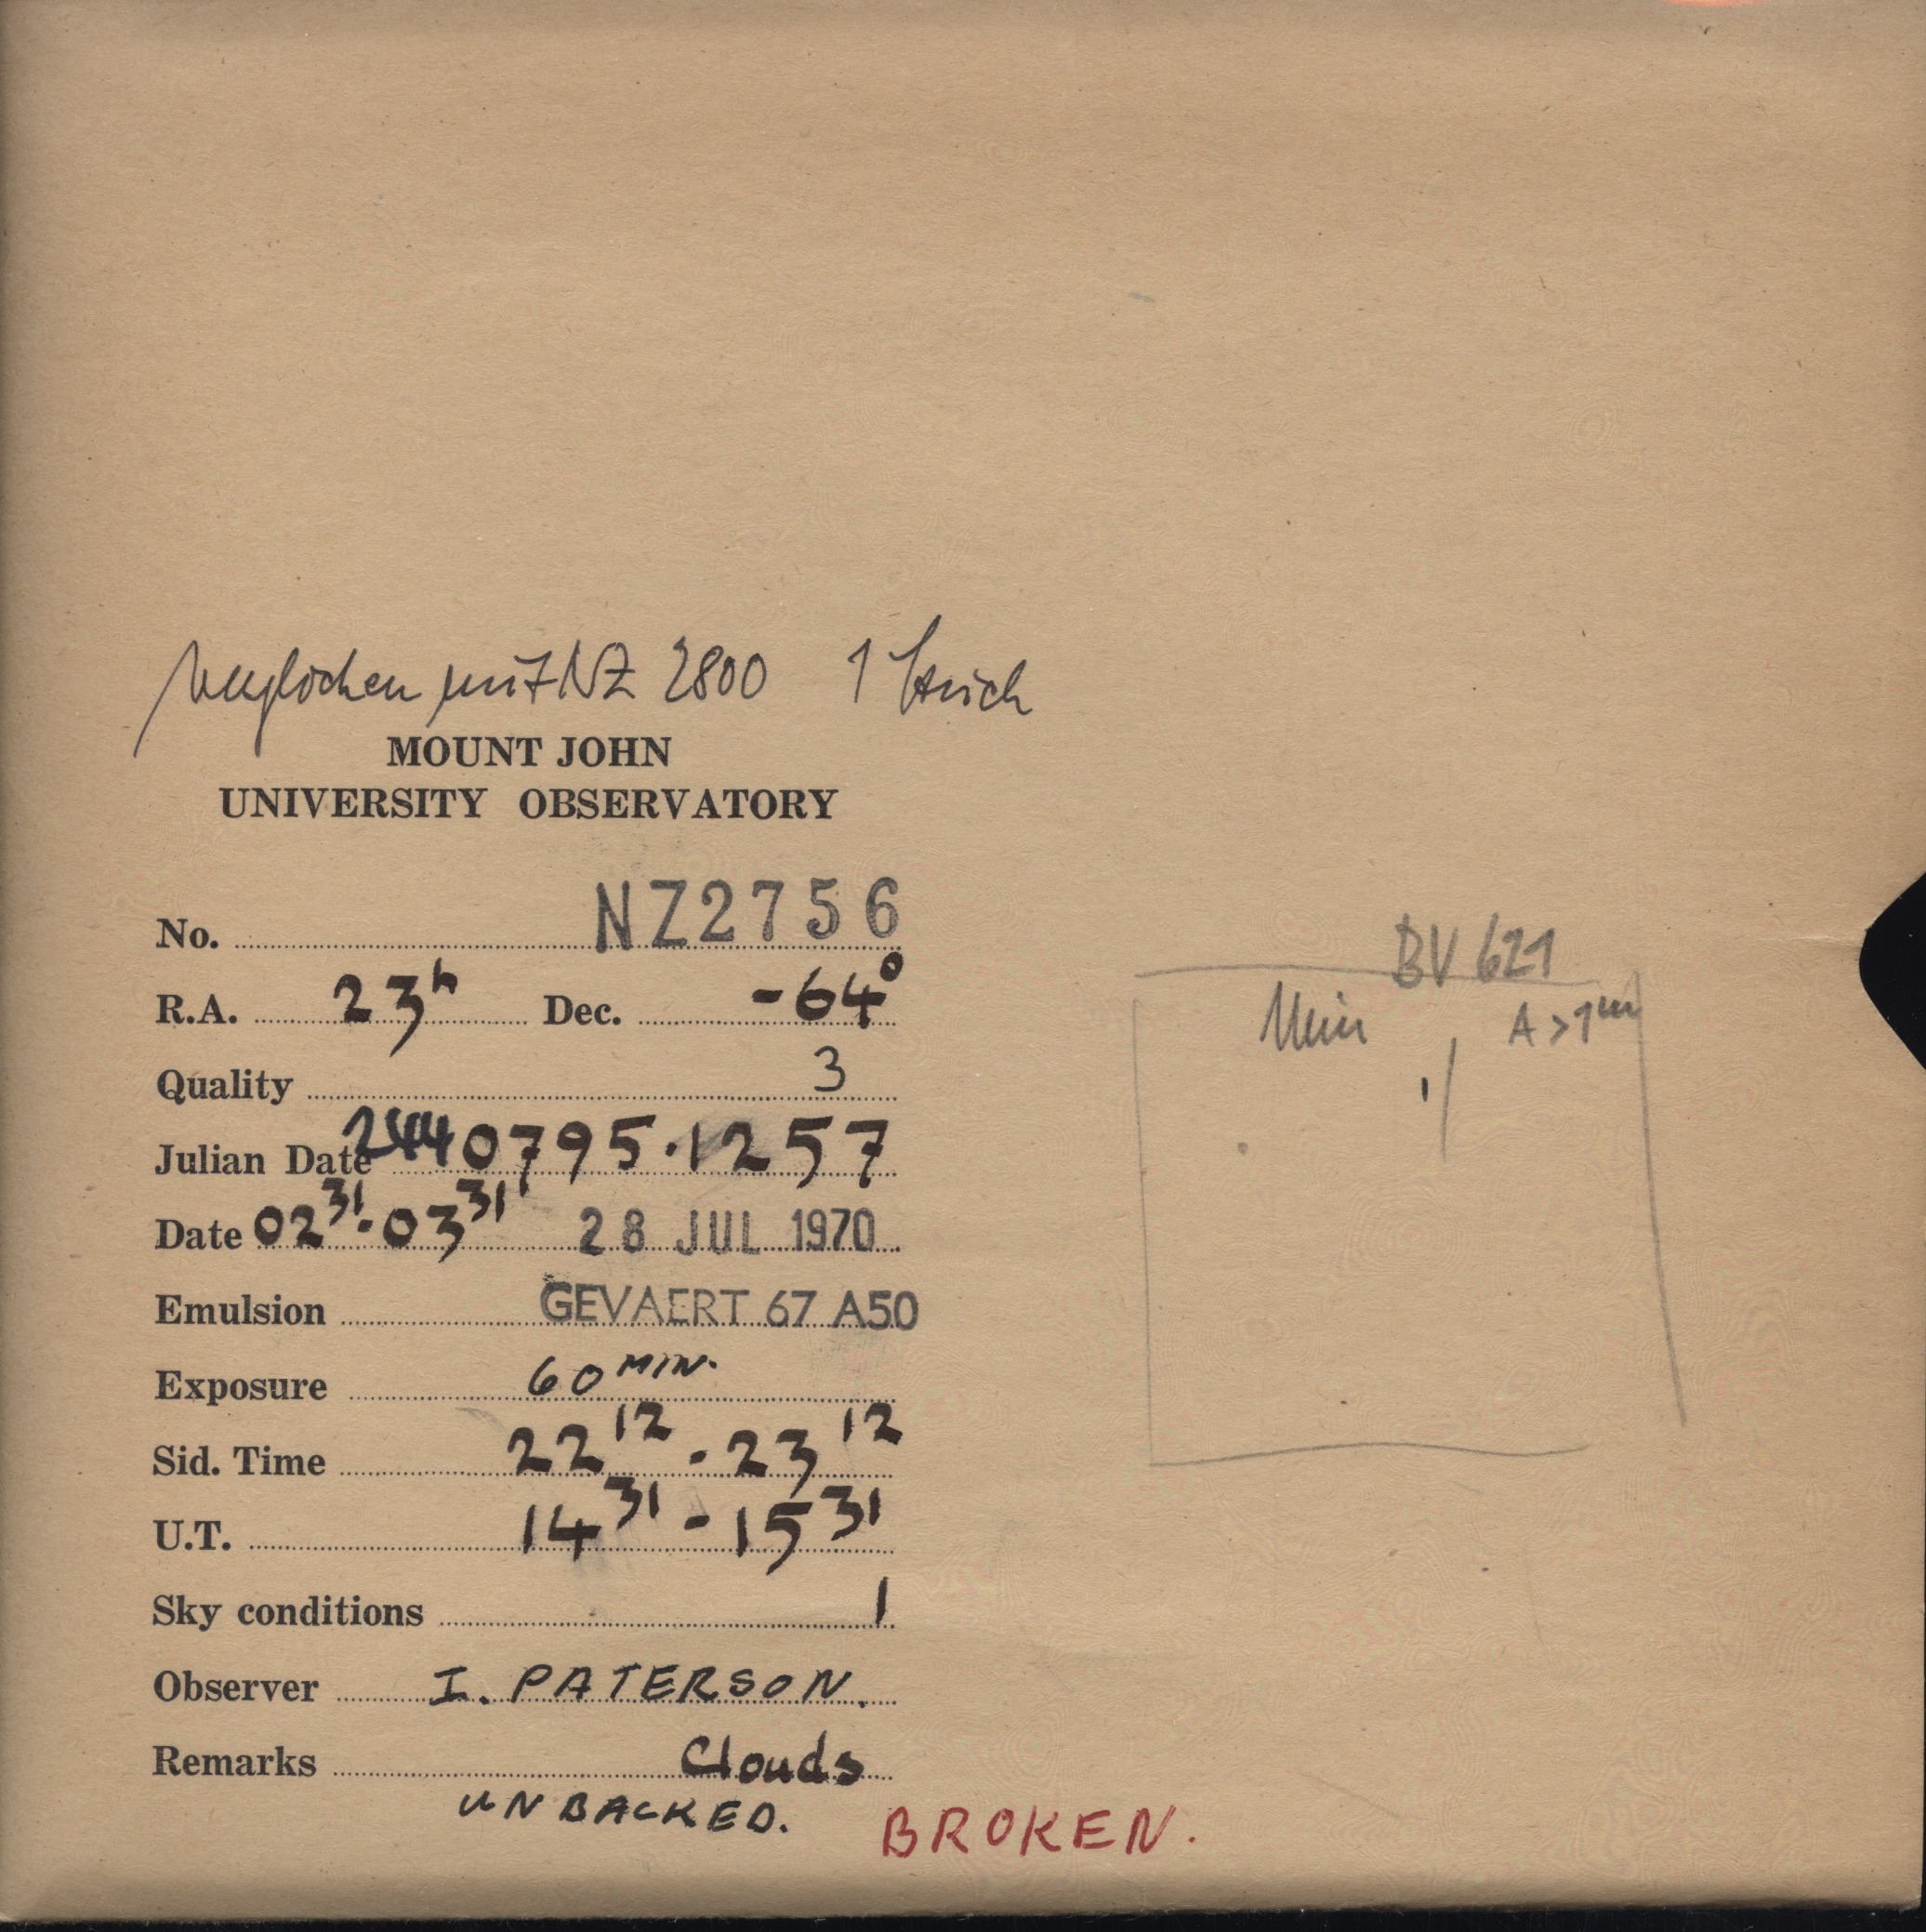 verglichen mit NZ 2800 1 Strich
MOUNT JOHN
UNIVERSITY OBSERVATORY
No. NZ2756
R.A. 23h Dec. -64°
Quality 3
Julian Date 2440795.1257
Date 02 31 - 03 31 28 JUL 1970
Emulsion GEVAERT 67 A50
Exposure 60 MIN.
Sid. Time 22 12 - 23 12
U.T. 14 31 - 15 31
Sky conditions 1
Observer I. PATERSON.
Remarks Clouds
UNBACKED. BROKEN.
BV 621
Min A > 1m